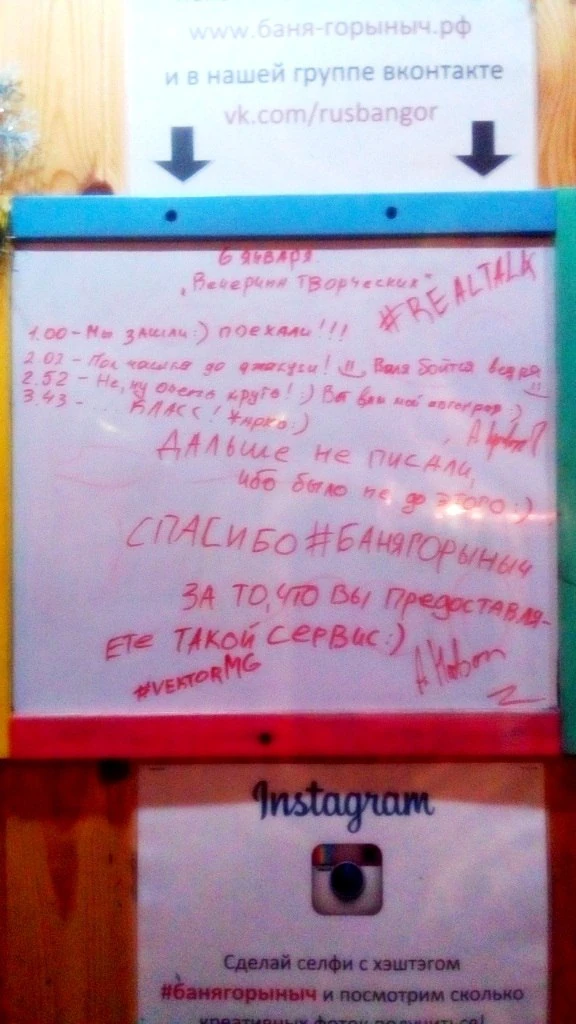 www.баня-горыныч.рф
и в нашей группе вконтакте
vk.com/rusbangor
6 января.
„Вечерин творческих"
#REALTALK
1.00 - Мы зашли:) поехали!!!
2.02 - Пол часика до джакузи! Валя боится ведра
2.52 - Не, ну очень круто! :) Вот вам мой автограф :)
3.43 - КЛАСС! Жарко :)
Дальше не писали,
ибо было не до этого :)
СПАСИБО #БАНЯГОРЫНЫЧ
ЗА ТО, ЧТО ВЫ ПРЕДОСТАВЛЯ-
ЕТЕ ТАКОЙ СЕРВИС:)
#VEKTORMG
Instagram
Сделай селфи с хэштэгом
#банягорыныч и посмотрим сколько
креативных фоток получиться!